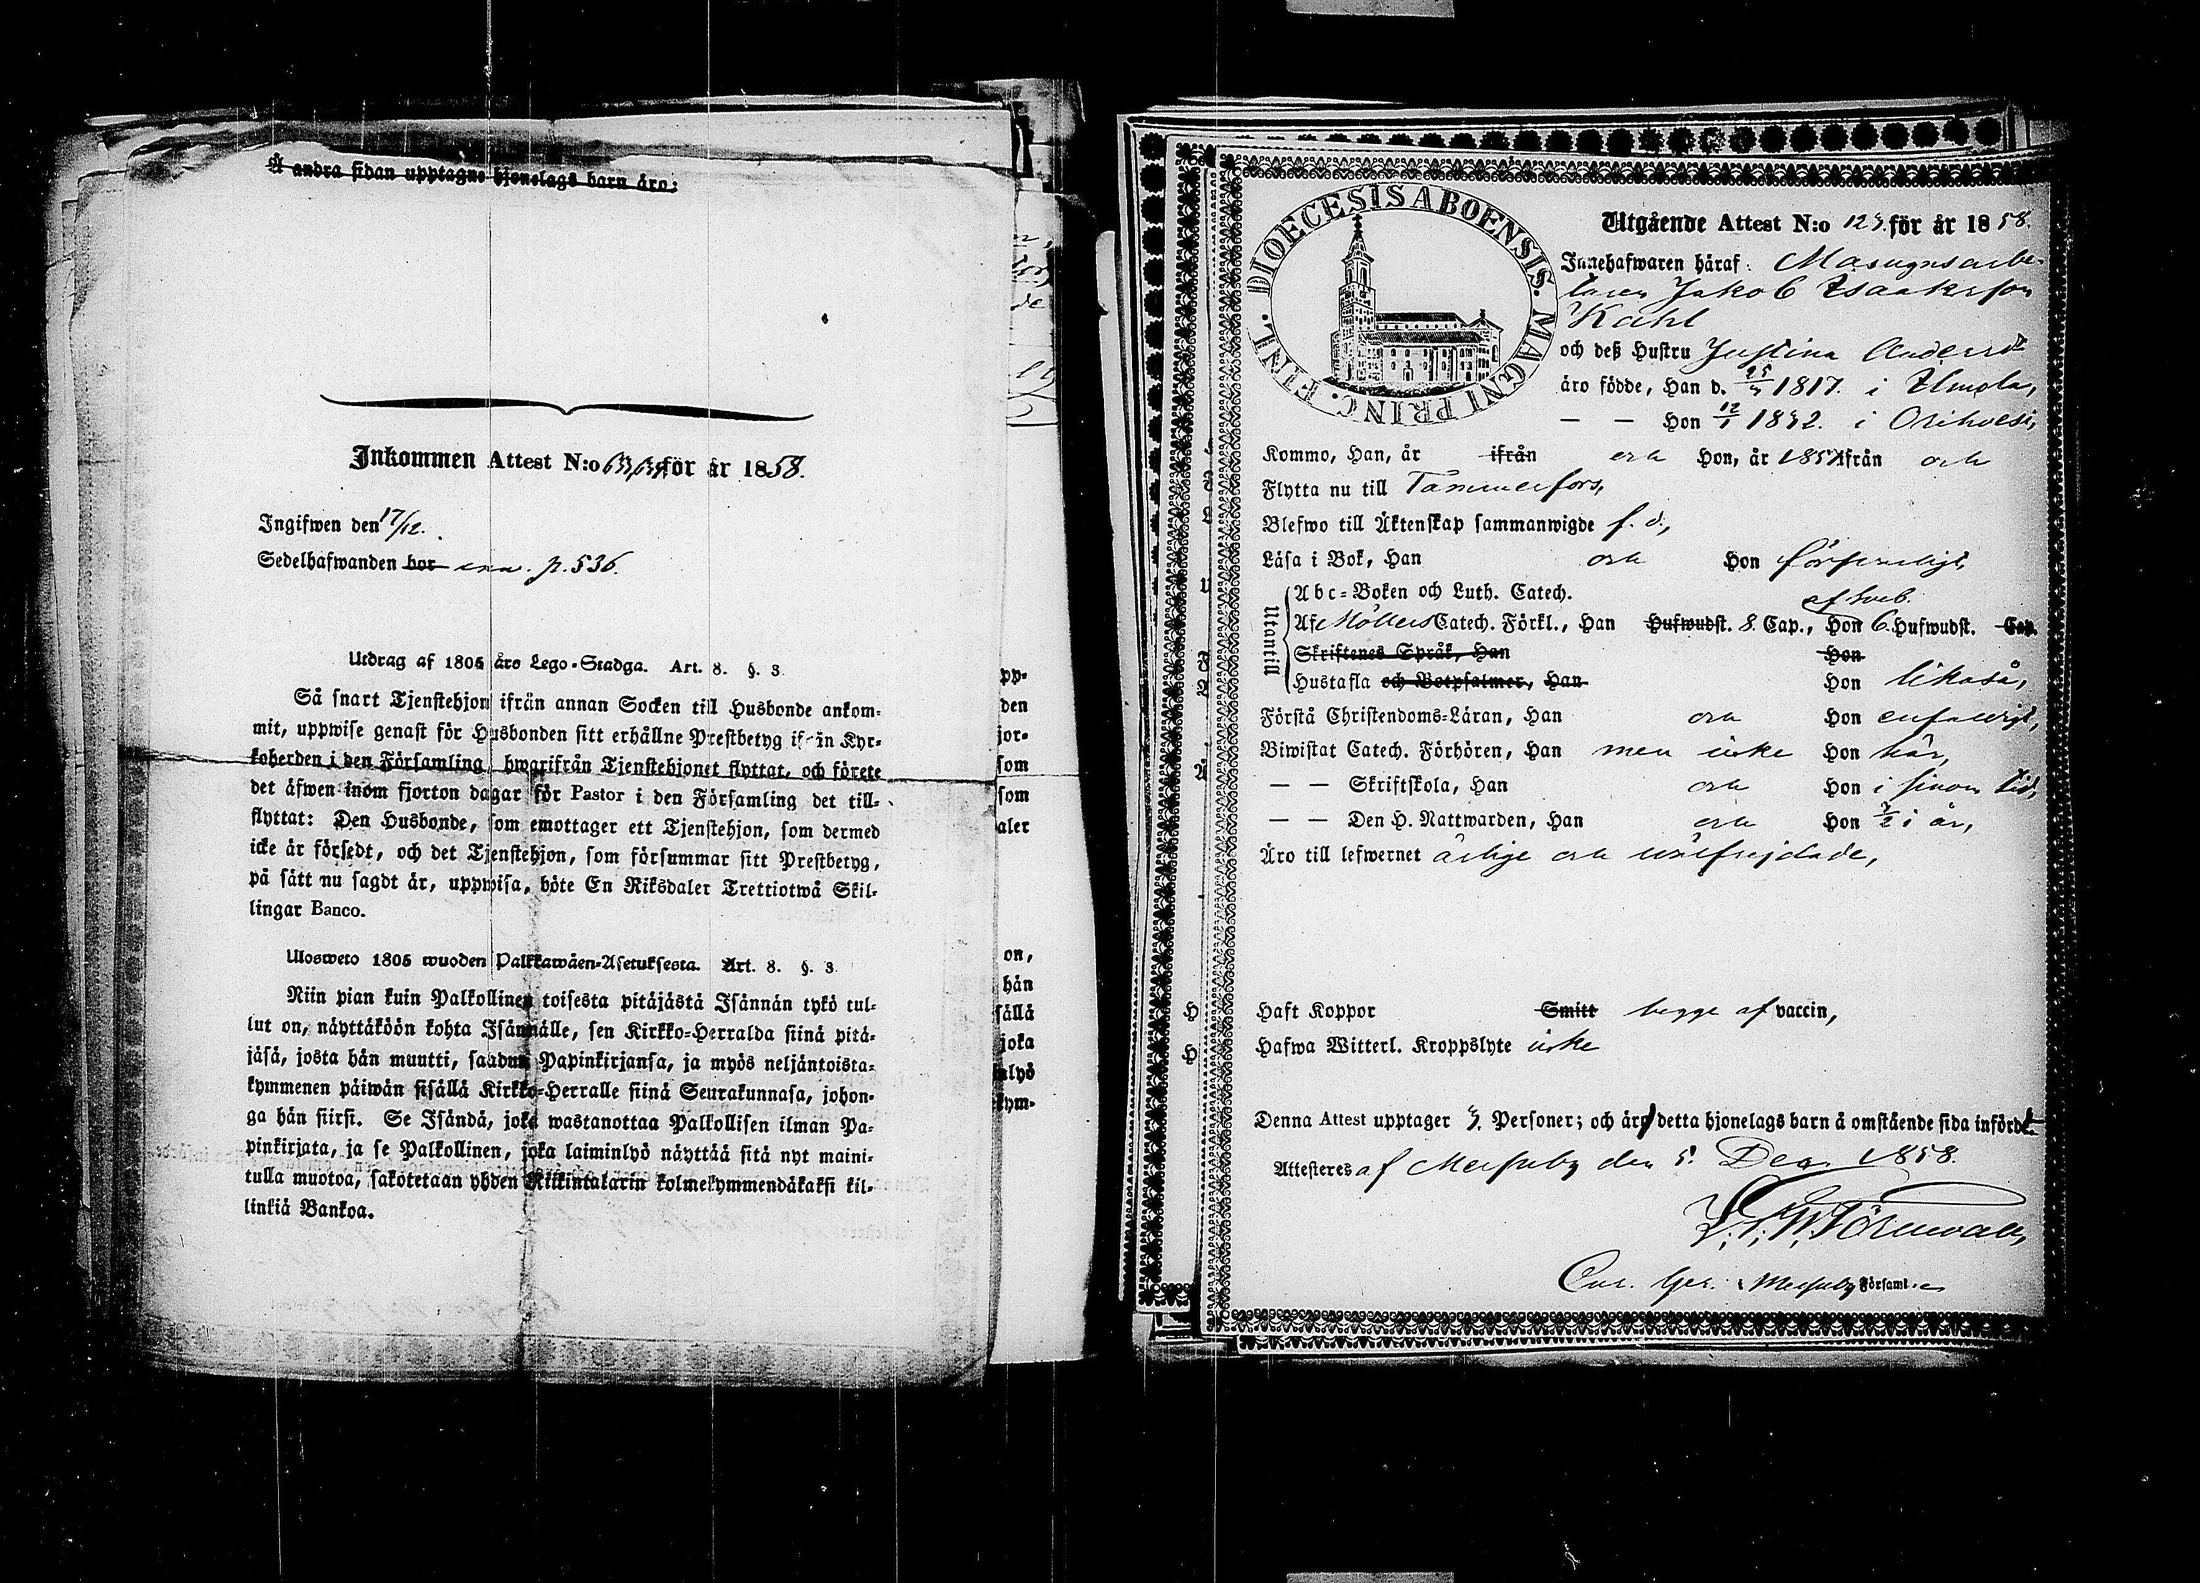 Å andra sidan upptagne hjonelags barn äro:
Inkommen Attest N:o 63,64 för år 1858.
Ingifwen den 17/12.
Sedelhafwanden bor p. 536.
Utdrag af 1805 års Lego-Stadga. Art. 8. §. 3.
Så snart Tjenstehjon ifrån annan Socken till Husbonde ankom-
mit, uppwise genast för Husbonden sitt erhållne Prestbetyg ifrån Kyr-
koherden i den Församling, hwarifrån Tjenstehjonet flyttat, och förete
det äfwen inom fjorton dagar för Pastor i den Församling det till-
flyttat: Den Husbonde, som emottager ett Tjenstehjon, som dermed
icke är försedt, och det Tjenstehjon, som försummar sitt Prestbetyg,
på sätt nu sagdt är, uppwisa, böte En Riksdaler Trettiotwå Skil-
lingar Banco.
Ulosweto 1805 wuoden Palkkawäen-Asetuksesta. Art. 8. §. 3.
Niin pian kuin Palkollinen toisesta pitäjästä Isännän tykö tul-
lut on, näyttäköön kohta Isännälle, sen Kirkko-Herralda siinä pitä-
jäsä, josta hän muutti, saadun Papinkirjansa, ja myös neljäntoista-
kymmenen päiwän sisällä Kirkko-Herralle siinä Seurakunnasa, johon-
ga hän siirsi. Se Isändä, joka wastanottaa Palkollisen ilman Pa-
pinkirjata, ja se Palkollinen, joka laiminlyö näyttää sitä nyt maini-
tulla muotoa, sakotetaan yhden Riikintalarin kolmekymmendäkaksi kil-
linkiä Bankoa.
pp-
den
jor-
som
som
aler
on,
hän
sällä
joka
nlyö
kym-
DIOECESIS ABOENSIS. MAGNI PRINC. FINL.
Utgående Attest N:o 123. för år 1858.
Innehafwaren häraf: Masugnsarbe-
taren Jakob Isaaksson
Kahl
och deß Hustru Justina Andersd
äro födde, Han d. 25/7 1817. i Ilmola,
— — Hon 12/1 1832. i Orihvesi,
Kommo, Han, år ifrån och Hon, år 1857 ifrån och
Flytta nu till Tammerfors,
Blefwo till Äktenskap sammanwigde f. å.,
Läsa i Bok, Han och Hon försvarligt
Utantill
Abc-Boken och Luth. Catech.
af Sveb.
Af Möllers Catech. Förkl., Han Hufwudst. 8. Cap., Hon 6. Hufwudst. Cap.
Skriftenes Språk, Han Hon
Hustafla och Botpsalmer, Han Hon likaså,
Förstå Christendoms-Läran, Han och Hon enfaldigt,
Biwistat Catech. Förhören, Han men icke Hon här,
— — Skriftskola, Han och Hon i sinom tid,
— — Den H. Nattwarden, Han och Hon i år,
Äro till lefwernet ärlige och wälfrejdade,
Haft Koppor Smitt begge af vaccin,
Hafwa Witterl. Kroppslyte icke
Denna Attest upptager 3. Personer; och äro detta hjonelags barn å omstående sida införde.
Attesteres af Messuby den 5. Dec. 1858.
F. W. Törnwall,
Cur. Ger. i Messuby Församl.